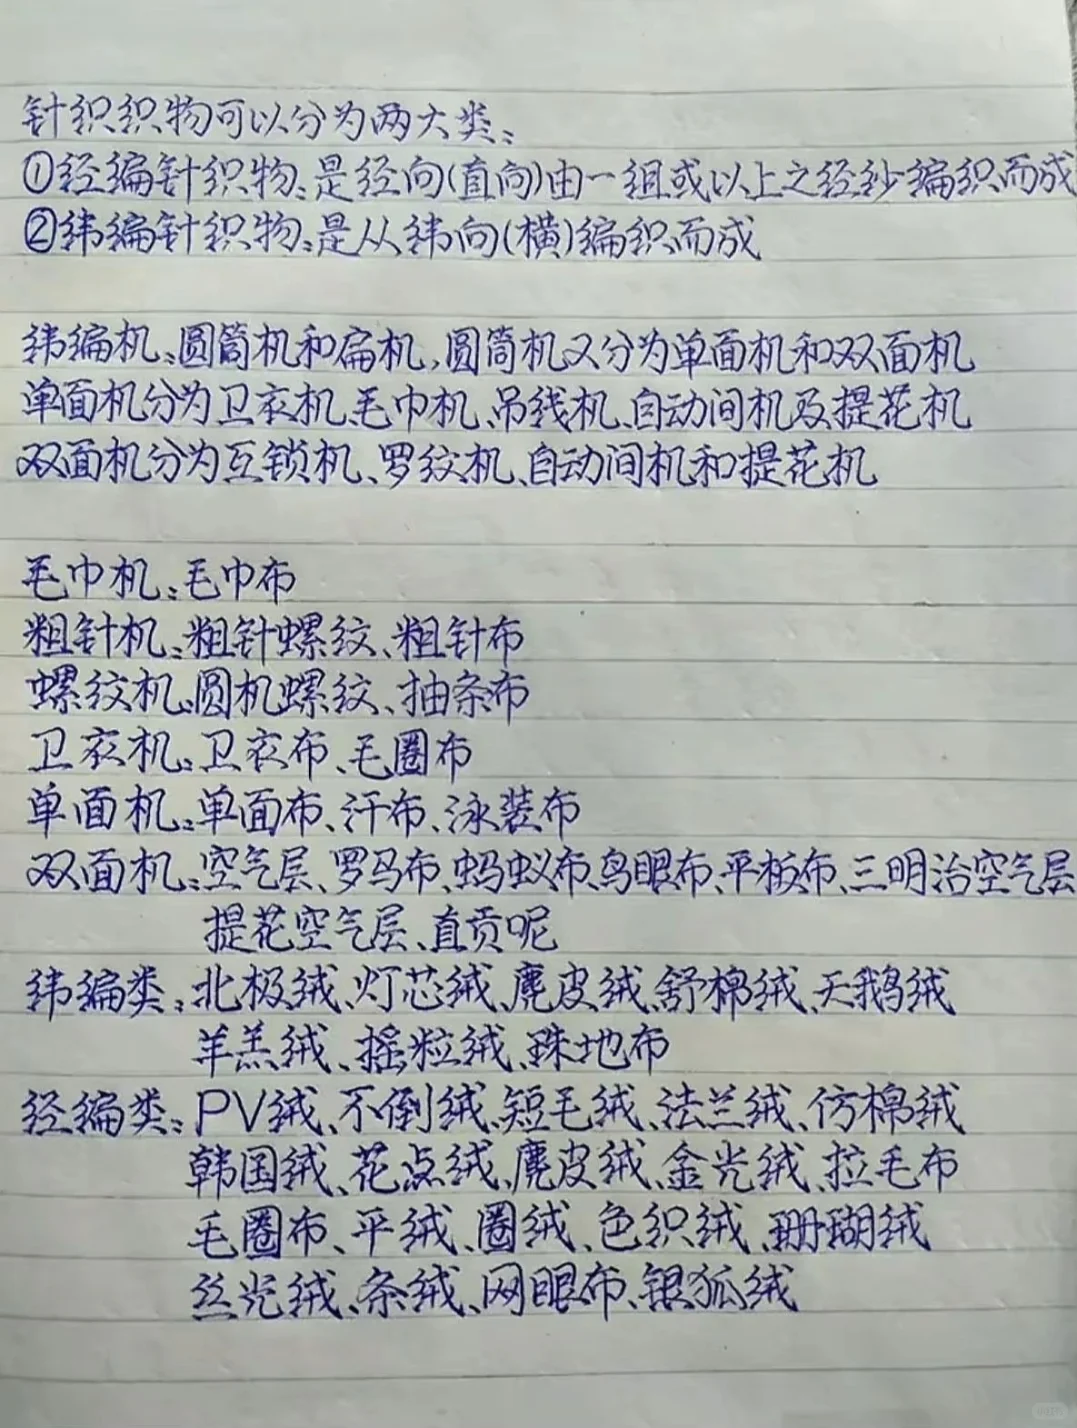 针织织物可以分为两大类:
①经编针织物:是经向(直向)由一组或以上之经纱编织而成
②纬编针织物:是从纬向(横)编织而成
纬编机:圆筒机和扁机,圆筒机又分为单面机和双面机
单面机分为卫衣机、毛巾机、吊线机、自动间机及提花机
双面机分为互锁机、罗纹机、自动间机和提花机
毛巾机:毛巾布
粗针机:粗针螺纹、粗针布
螺纹机:圆机螺纹、抽条布
卫衣机:卫衣布、毛圈布
单面机:单面布、汗布、泳装布
双面机:空气层、罗马布、蚂蚁布、鸟眼布、平板布、三明治空气层
提花空气层、直贡呢
纬编类:北极绒、灯芯绒、麂皮绒、舒棉绒、天鹅绒
羊羔绒、摇粒绒、珠地布
经编类:PV绒、不倒绒、短毛绒、法兰绒、仿棉绒
韩国绒、花点绒、麂皮绒、金光绒、拉毛布
毛圈布、平绒、圈绒、色织绒、珊瑚绒
丝光绒、条绒、网眼布、银狐绒